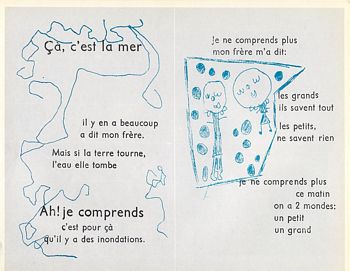 Çà, c'est la mer
il y en a beaucoup
a dit mon frère.
Mais si la terre tourne,
l'eau elle tombe
Ah! je comprends
c'est pour çà
qu'il y a des inondations.
Je ne comprends plus
mon frère m'a dit:
les grands
ils savent tout
les petits,
ne savent rien
je ne comprends plus
ce matin
on a 2 mondes:
un petit
un grand